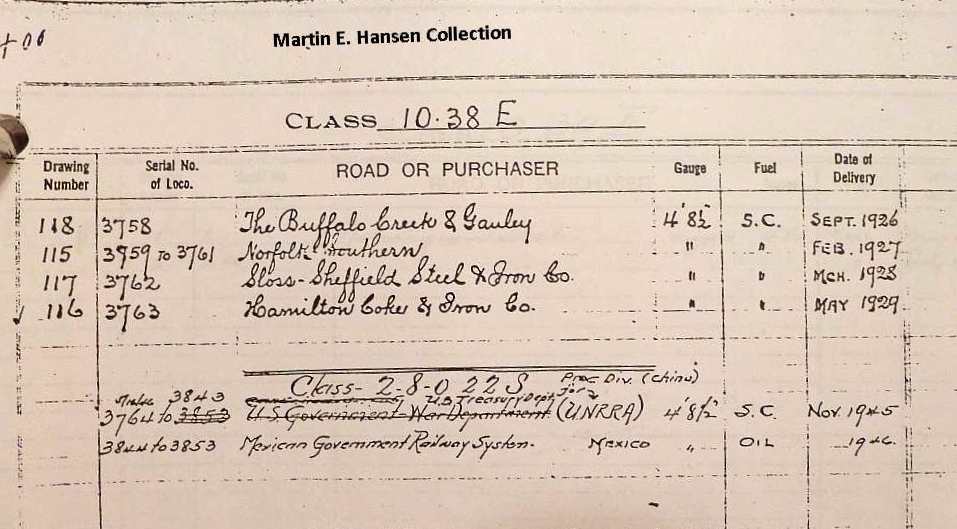 Martin E. Hansen Collection
CLASS 10·38 E
Drawing Number Serial No. of Loco. ROAD OR PURCHASER Gauge Fuel Date of Delivery
118 3758 The Buffalo Creek & Gauley 4' 8½" S.C. SEPT. 1926
115 3959 TO 3761 Norfolk Southern " " FEB. 1927
117 3762 Sloss-Sheffield Steel & Iron Co. " " MCH. 1928
116 3763 Hamilton Coke & Iron Co. " " MAY 1929
Class- 2-8-0 22S Proc Div. (China)
3843 U.S. Treasury Dept. for
3764 to 3853 U.S. Government War Department (UNRRA) 4' 8½" S.C. Nov. 1945
3844 to 3853 Mexican Government Railway System. Mexico " OIL 1946.